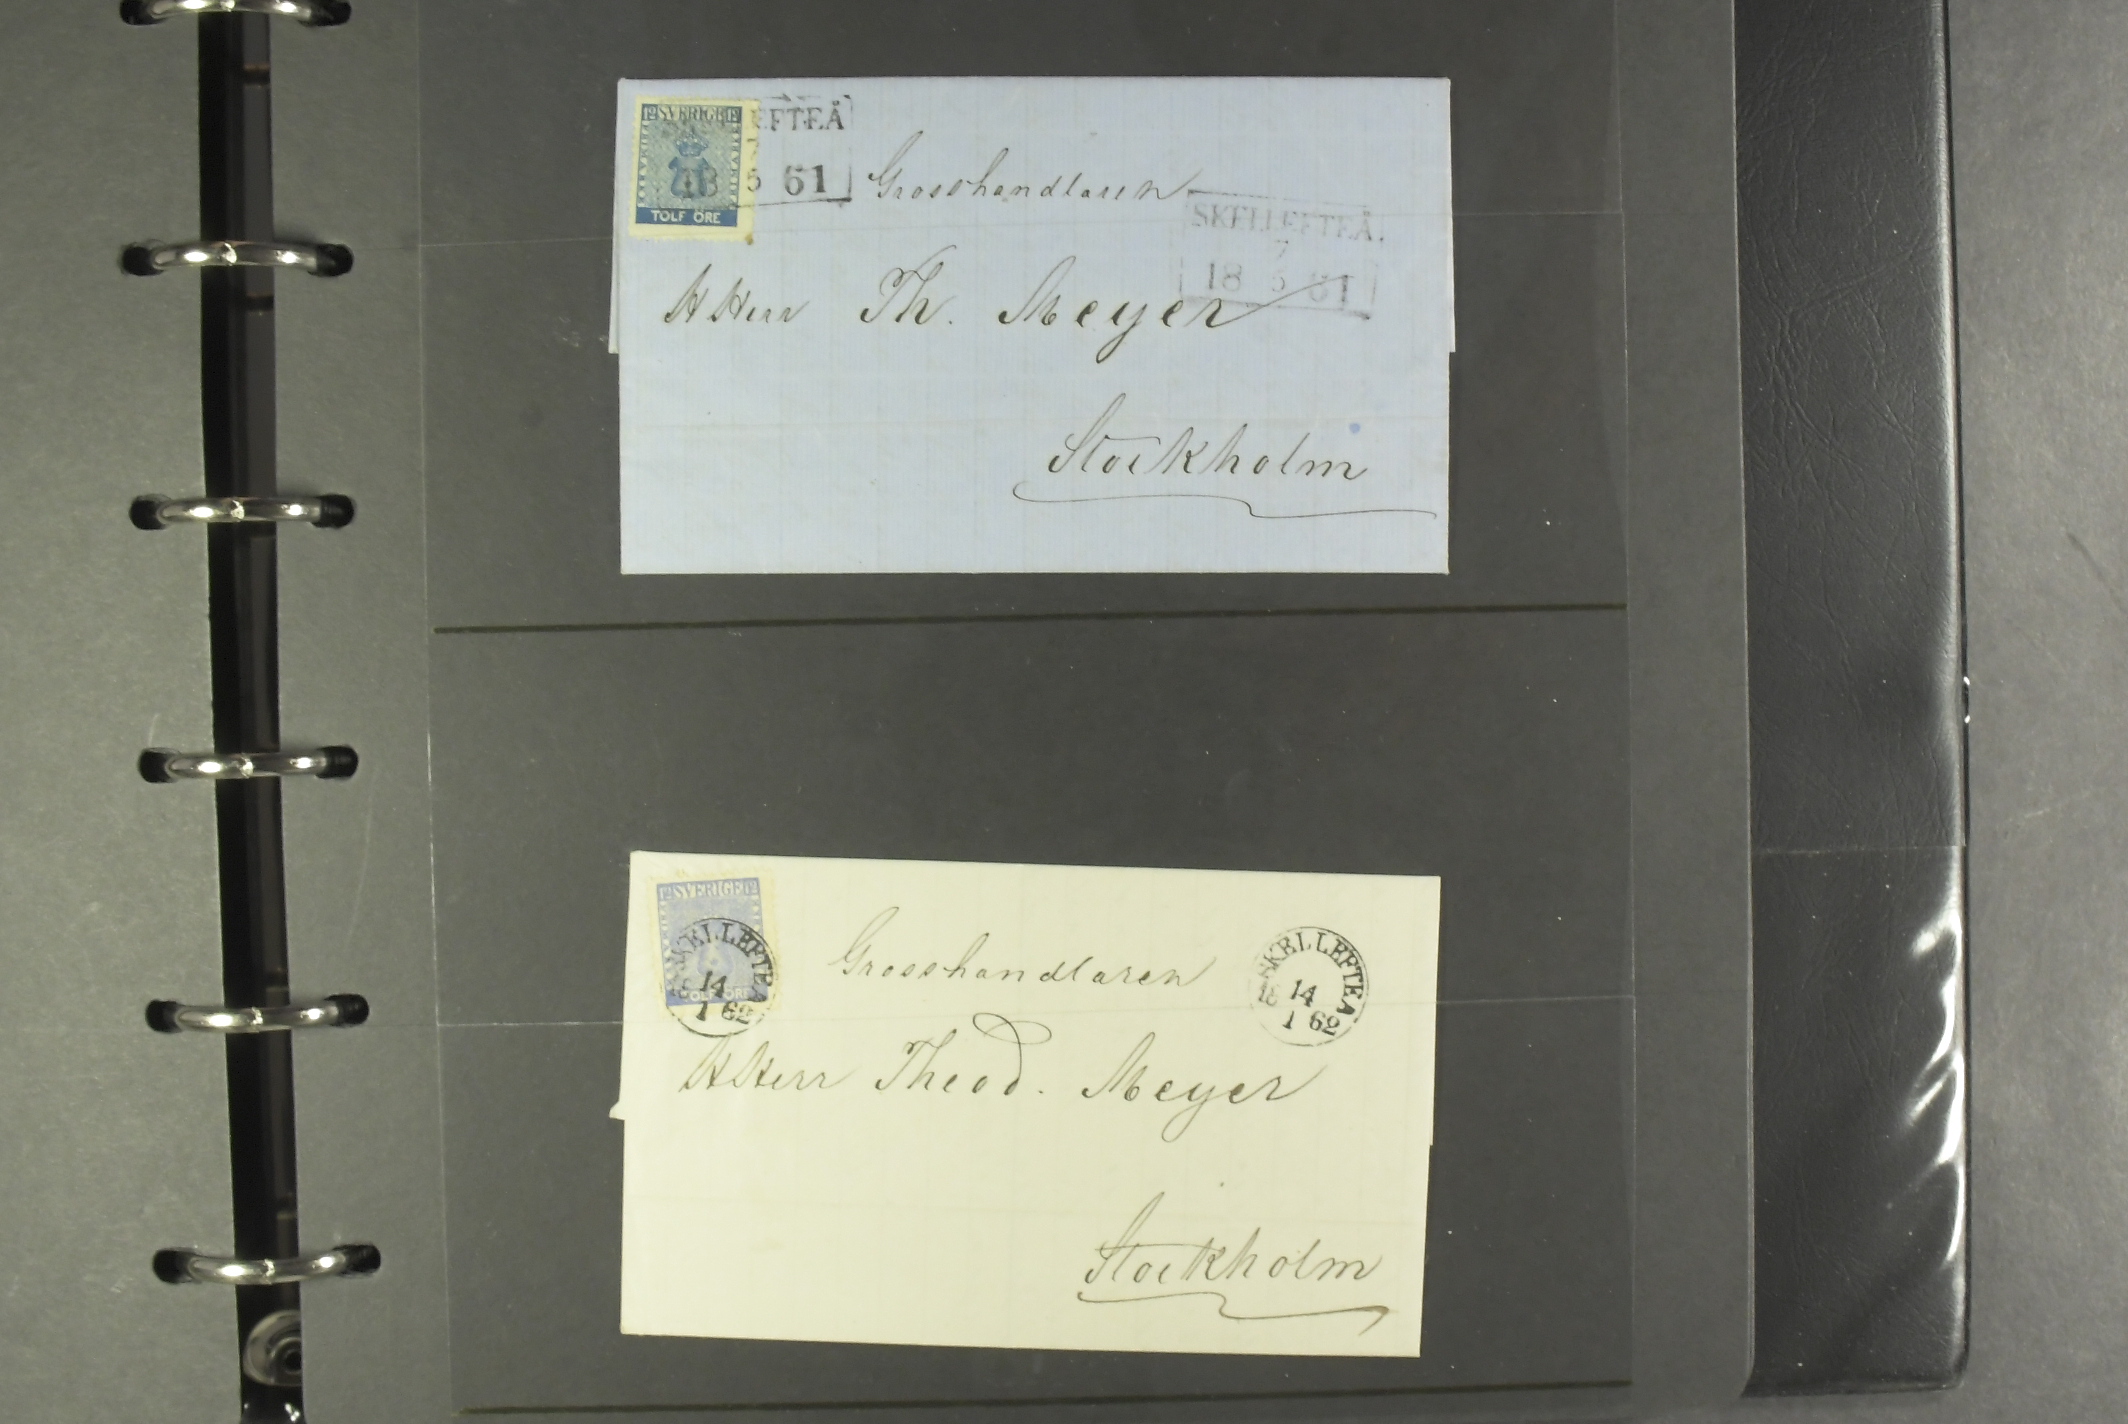 12 SVERIGE 12
TOLF ÖRE
EFTEÅ
7
18 5 61
Grosshandlaren
SKELLEFTEÅ.
7
18 5 61
HHerr Th. Meyer
Stockholm
12 SVERIGE 12
TOLF ÖRE
SKELLEFTEÅ
18 14
1 62
Grosshandlaren
SKELLEFTEÅ
18 14
1 62
HHerr Theod. Meyer
Stockholm